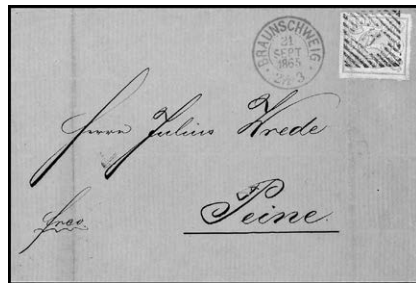 BRAUNSCHWEIG
21
SEPT
1865
2¼-3
Herrn Julius Wrede
Peine.
frco